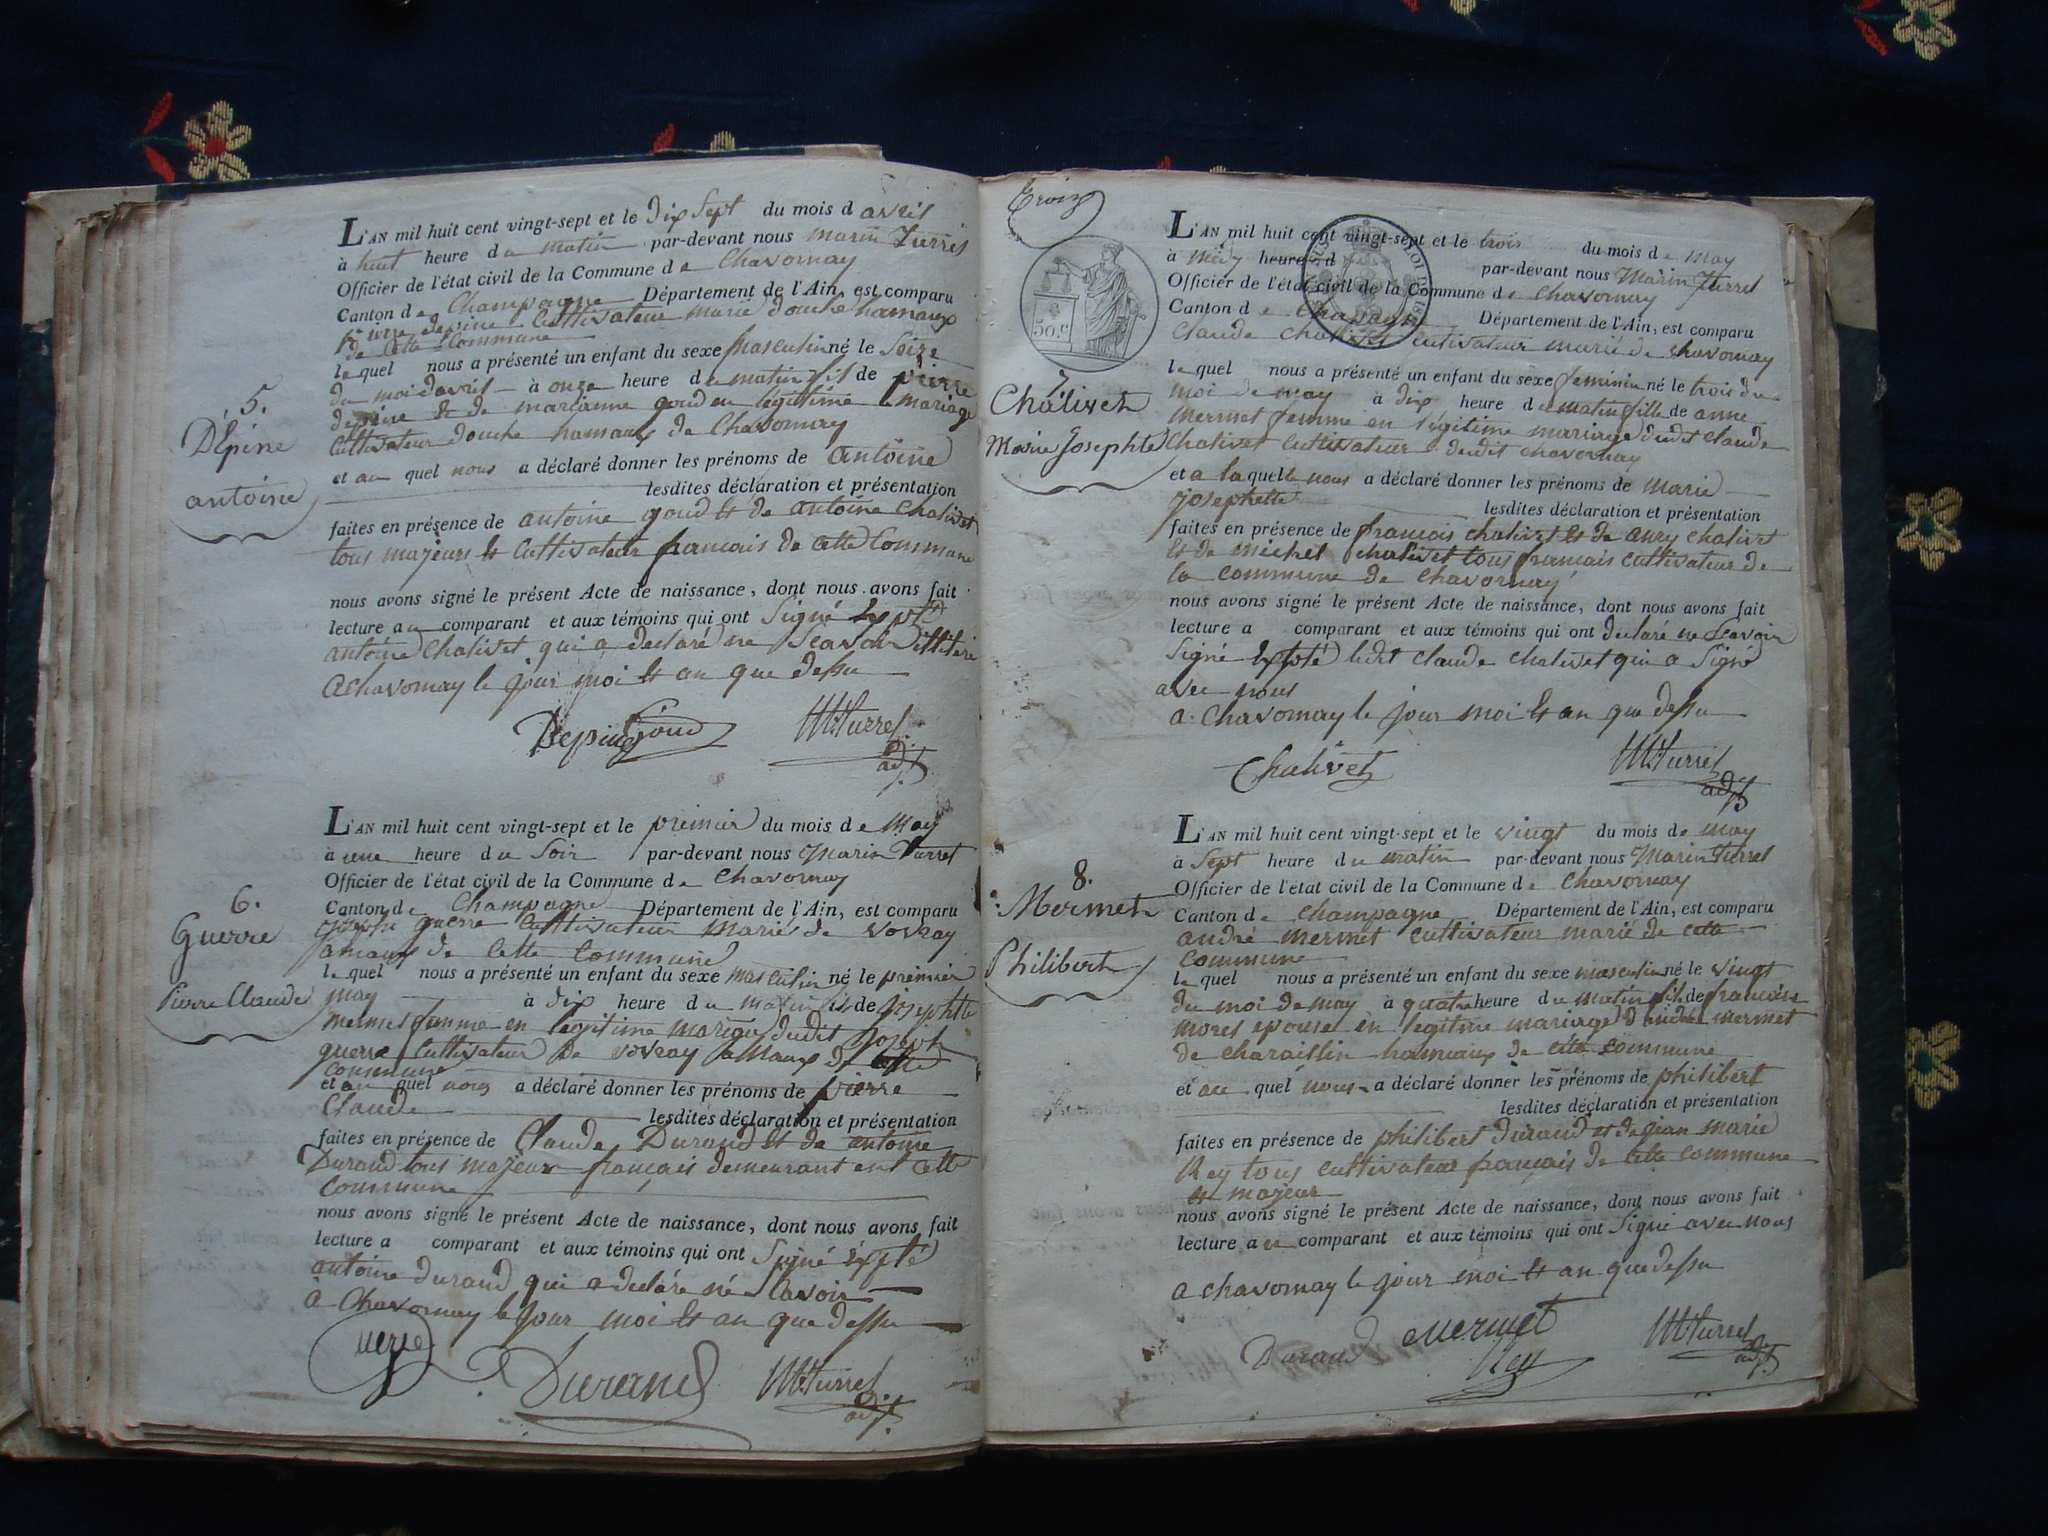 L'AN mil huit cent vingt-sept et le dix sept du mois d avril
à huit heure du matin par-devant nous marin Turrel
Officier de l'état civil de la Commune de Chavornay
Canton de Champagne Département de l'Ain, est comparu
depine Cultivateur marié douche hamaux
de cette Commune
lequel nous a présenté un enfant du sexe masculin né le Seize
du moi davril à onze heure de matin fils de pierre
depine & de marianne goud en légitime mariage
Cultivateur douche hamaux de Chavornay
5.
DÉpine
antoine
et au quel nous a déclaré donner les prénoms de antoine
lesdites déclaration et présentation
faites en présence de antoine goud & de antoine Chalivet
tous majeurs & Cultivateur francais de cette Commune
nous avons signé le présent Acte de naissance, dont nous avons fait
lecture au comparant et aux témoins qui ont Signé
antoine Chalivet qui a déclaré ne Scavoir
a Chavornay le jour moi & an que dessu
Depine Goud MTurrel
adj
L'AN mil huit cent vingt-sept et le premier du mois de May
à une heure du Soir par-devant nous Marin Turrel
Officier de l'état civil de la Commune de Chavornay
Canton de Champagne Département de l'Ain, est comparu
joseph guerre Cultivateur marié de vovray
hamaux de Cette Commune
6.
Guerre
Pierre Claude
lequel nous a présenté un enfant du sexe masculin né le premier
may à dix heure du matin fils de josephte
mermet femme en légitime mariage dudit joseph
guerre Cultivateur de vovray hamaux de Cette
commune
et au quel nous a déclaré donner les prénoms de pierre
Claude
lesdites déclaration et présentation
faites en présence de Claude Durand & de antoine
Durand tous majeur français demeurant en Cette
commune
nous avons signé le présent Acte de naissance, dont nous avons fait
lecture a comparant et aux témoins qui ont Signé
antoine durand qui a declaré né Scavoir
a Chavornay le jour moi & an que dessu
Durand MTurrel
adj
Troix
50.c
L'AN mil huit cent vingt-sept et le trois du mois de may
à midy heure d par-devant nous Marin Turrel
Officier de l'état civil de la Commune de Chavornay
Canton de Département de l'Ain, est comparu
Claude Chalivet Cultivateur marié de Chavornay
7
Chalivet
Marie Josephte
lequel nous a présenté un enfant du sexe feminin né le trois du
moi de may à dix heure de matin fille de anne
mermet femme en légitime mariage dudit claude
Chalivet Cultivateur dudit Chavornay
et a laquelle nous a déclaré donner les prénoms de marie
josephette
lesdites déclaration et présentation
faites en présence de françois chalivet & de chalivet
& de michel chalivet tous francais cultivateur de
la commune de Chavornay
nous avons signé le présent Acte de naissance, dont nous avons fait
lecture a comparant et aux témoins qui ont declaré ne Scavoir
Signé ledit claude chalivet qui a Signé
avec nous
a Chavornay le jour moi & an que dessu
Chalivet MTurrel
adj
L'AN mil huit cent vingt-sept et le vingt du mois de may
à Sept heure du matin par-devant nous Marin Turrel
Officier de l'état civil de la Commune de Chavornay
Canton de Champagne Département de l'Ain, est comparu
andré mermet cultivateur marié de cette
commune
8.
Mermet
Philibert
lequel nous a présenté un enfant du sexe masculin né le vingt
du moi de may à quatre heure du matin fils de francoise
morel epouse en legitime mariage d andré mermet
de charaillin hameaux de cette commune
et au quel nous a déclaré donner les prénoms de philibert
lesdites déclaration et présentation
faites en présence de philibert durand et de jean marie
Rey tous cultivateur français de cette commune
& majeur
nous avons signé le présent Acte de naissance, dont nous avons fait
lecture au comparant et aux témoins qui ont Signé avec nous
a chavornay le jour moi & an que dessu
Durand Mermet MTurrel
Rey adj